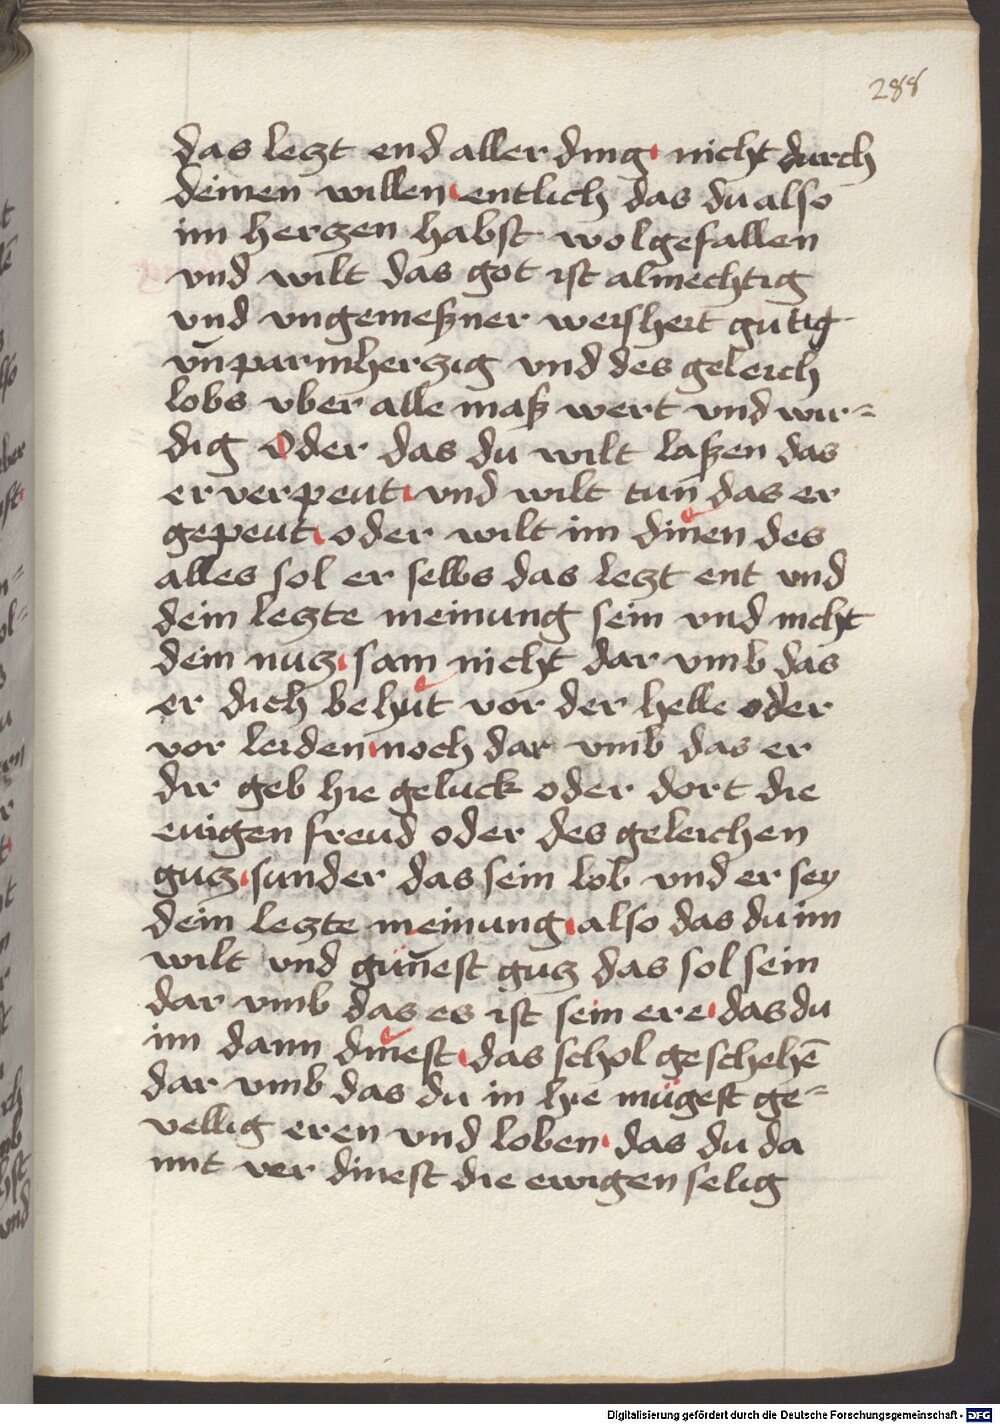 288
das leczt end aller ding nicht durch
deinen willen entlich das du also
im herczen habst wolgefallen
vnd wilt das got ist almechtig
vnd vngemeßner weisheit gutig
vn̄ parmherczig vnd des geleich
lobs vber alle maß wert vnd wir=
dig Oder das du wilt laßen das
er verpeut vnd wilt tun das er
gepeut oder wilt im dinen des
alles sol er selbs das leczt ent vnd
dein leczte meinung sein vnd nicht
dein nucz sam nicht dar vmb das
er dich behut vor der helle oder
vor leiden noch dar vmb das er
dir geb hie geluck oder dort die
ewigen freud oder des geleichen
gucz sunder das sein lob vnd er sey
dein leczte meinung also das du im
wilt vnd gün̄est gucz das sol sein
dar vmb das es ist sein ere das du
im dann dinest das schol geschehē
dar vmb das du in hye mügest ge=
vellig eren vnd loben das du da
mit ver dinest die ewigen selig
Digitalisierung gefördert durch die Deutsche Forschungsgemeinschaft - DFG